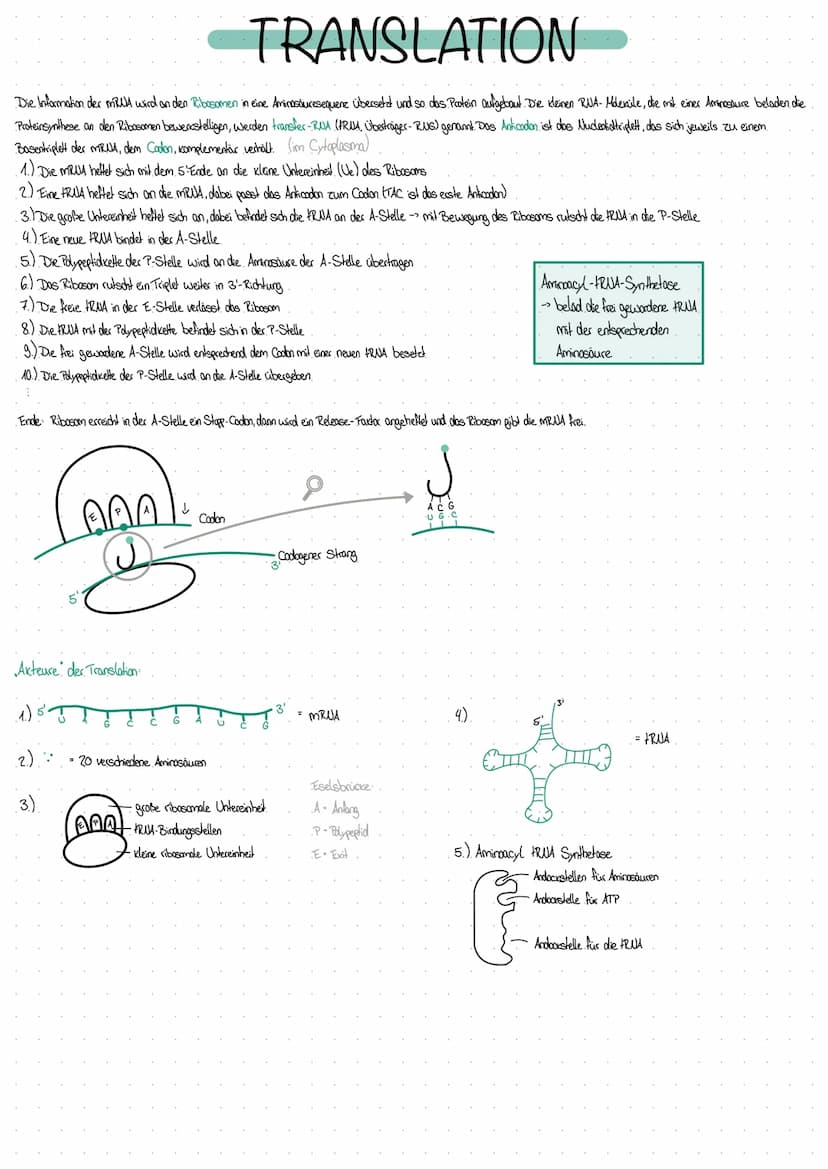 TRANSLATION
Die Information der mRNA wird an den Ribosomen in eine Aminosäuresequenz übersetzt und so das Protein aufgebaut. Die kleinen RNA-Moleküle, die mit einer Aminosäure beladen die
Proteinsynthese an den Ribosomen bewerkstelligen, werden transfer-RNA (tRNA, Überträger-RNS) genannt. Das Anticodon ist das Nucleotidtriplett, das sich jeweils zu einem
Basentriplett der mRNA, dem Codon, komplementär verhält. (im Cytoplasma)
1.) Die mRNA heftet sich mit dem 5'Ende an die kleine Untereinheit (Ue) des Ribosoms
2.) Eine tRNA heftet sich an die mRNA, dabei passt das Anticodon zum Codon (TAC ist das erste Anticodon)
3.) Die große Untereinheit heftet sich an, dabei befindet sich die tRNA an der A-Stelle -> mit Bewegung des Ribosoms rutscht die tRNA in die P-Stelle
4.) Eine neue tRNA bindet in der A-Stelle
5.) Die Polypeptidkette der P-Stelle wird an die Aminosäure der A-Stelle übertragen
6.) Das Ribosom rutscht ein Triplet weiter in 3'-Richtung
7.) Die freie tRNA in der E-Stelle verlässt das Ribosom
8.) Die tRNA mit der Polypeptidkette befindet sich in der P-Stelle
9.) Die frei gewordene A-Stelle wird entsprechend dem Codon mit einer neuen tRNA besetzt
10.) Die Polypeptidkette der P-Stelle wird an die A-Stelle übergeben
⋮
Aminoacyl-tRNA-Synthetase
-> belad die frei gewordene tRNA
mit der entsprechenden
Aminosäure
Ende: Ribosom erreicht in der A-Stelle ein Stopp-Codon, dann wird ein Release-Factor angeheftet und das Ribosom gibt die mRNA frei.
E P A
Codon
Codogener Strang
3'
5'
A C G
U G C
„Akteure" der Translation:
1.) 5' U A G C C G A U C G 3' = mRNA
2.) = 20 verschiedene Aminosäuren
3.) E P A
große ribosomale Untereinheit
tRNA-Bindungsstellen
kleine ribosomale Untereinheit
Eselsbrücke:
A - Anfang
P - Polypeptid
E - Exit
4.) 5' 3' = tRNA
5.) Aminoacyl tRNA Synthetase
Andockstellen für Aminosäuren
Andockstelle für ATP
Andockstelle für die tRNA